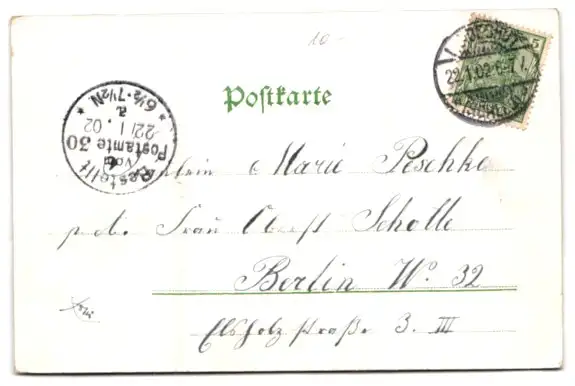 10-
5
22.1.02.
Postkarte
Bestellt
vom
Postamte 30
22/1.02
6½-7½N
Fräulein Marie Peschke
p. ad. Frau Oberst Scholle
Berlin W. 32
Elsholzstraße 3. III